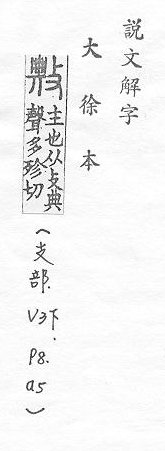 説文解字
大徐本
敟
主也从攴典
聲多殄切
(支部.V3下.P8.a5)